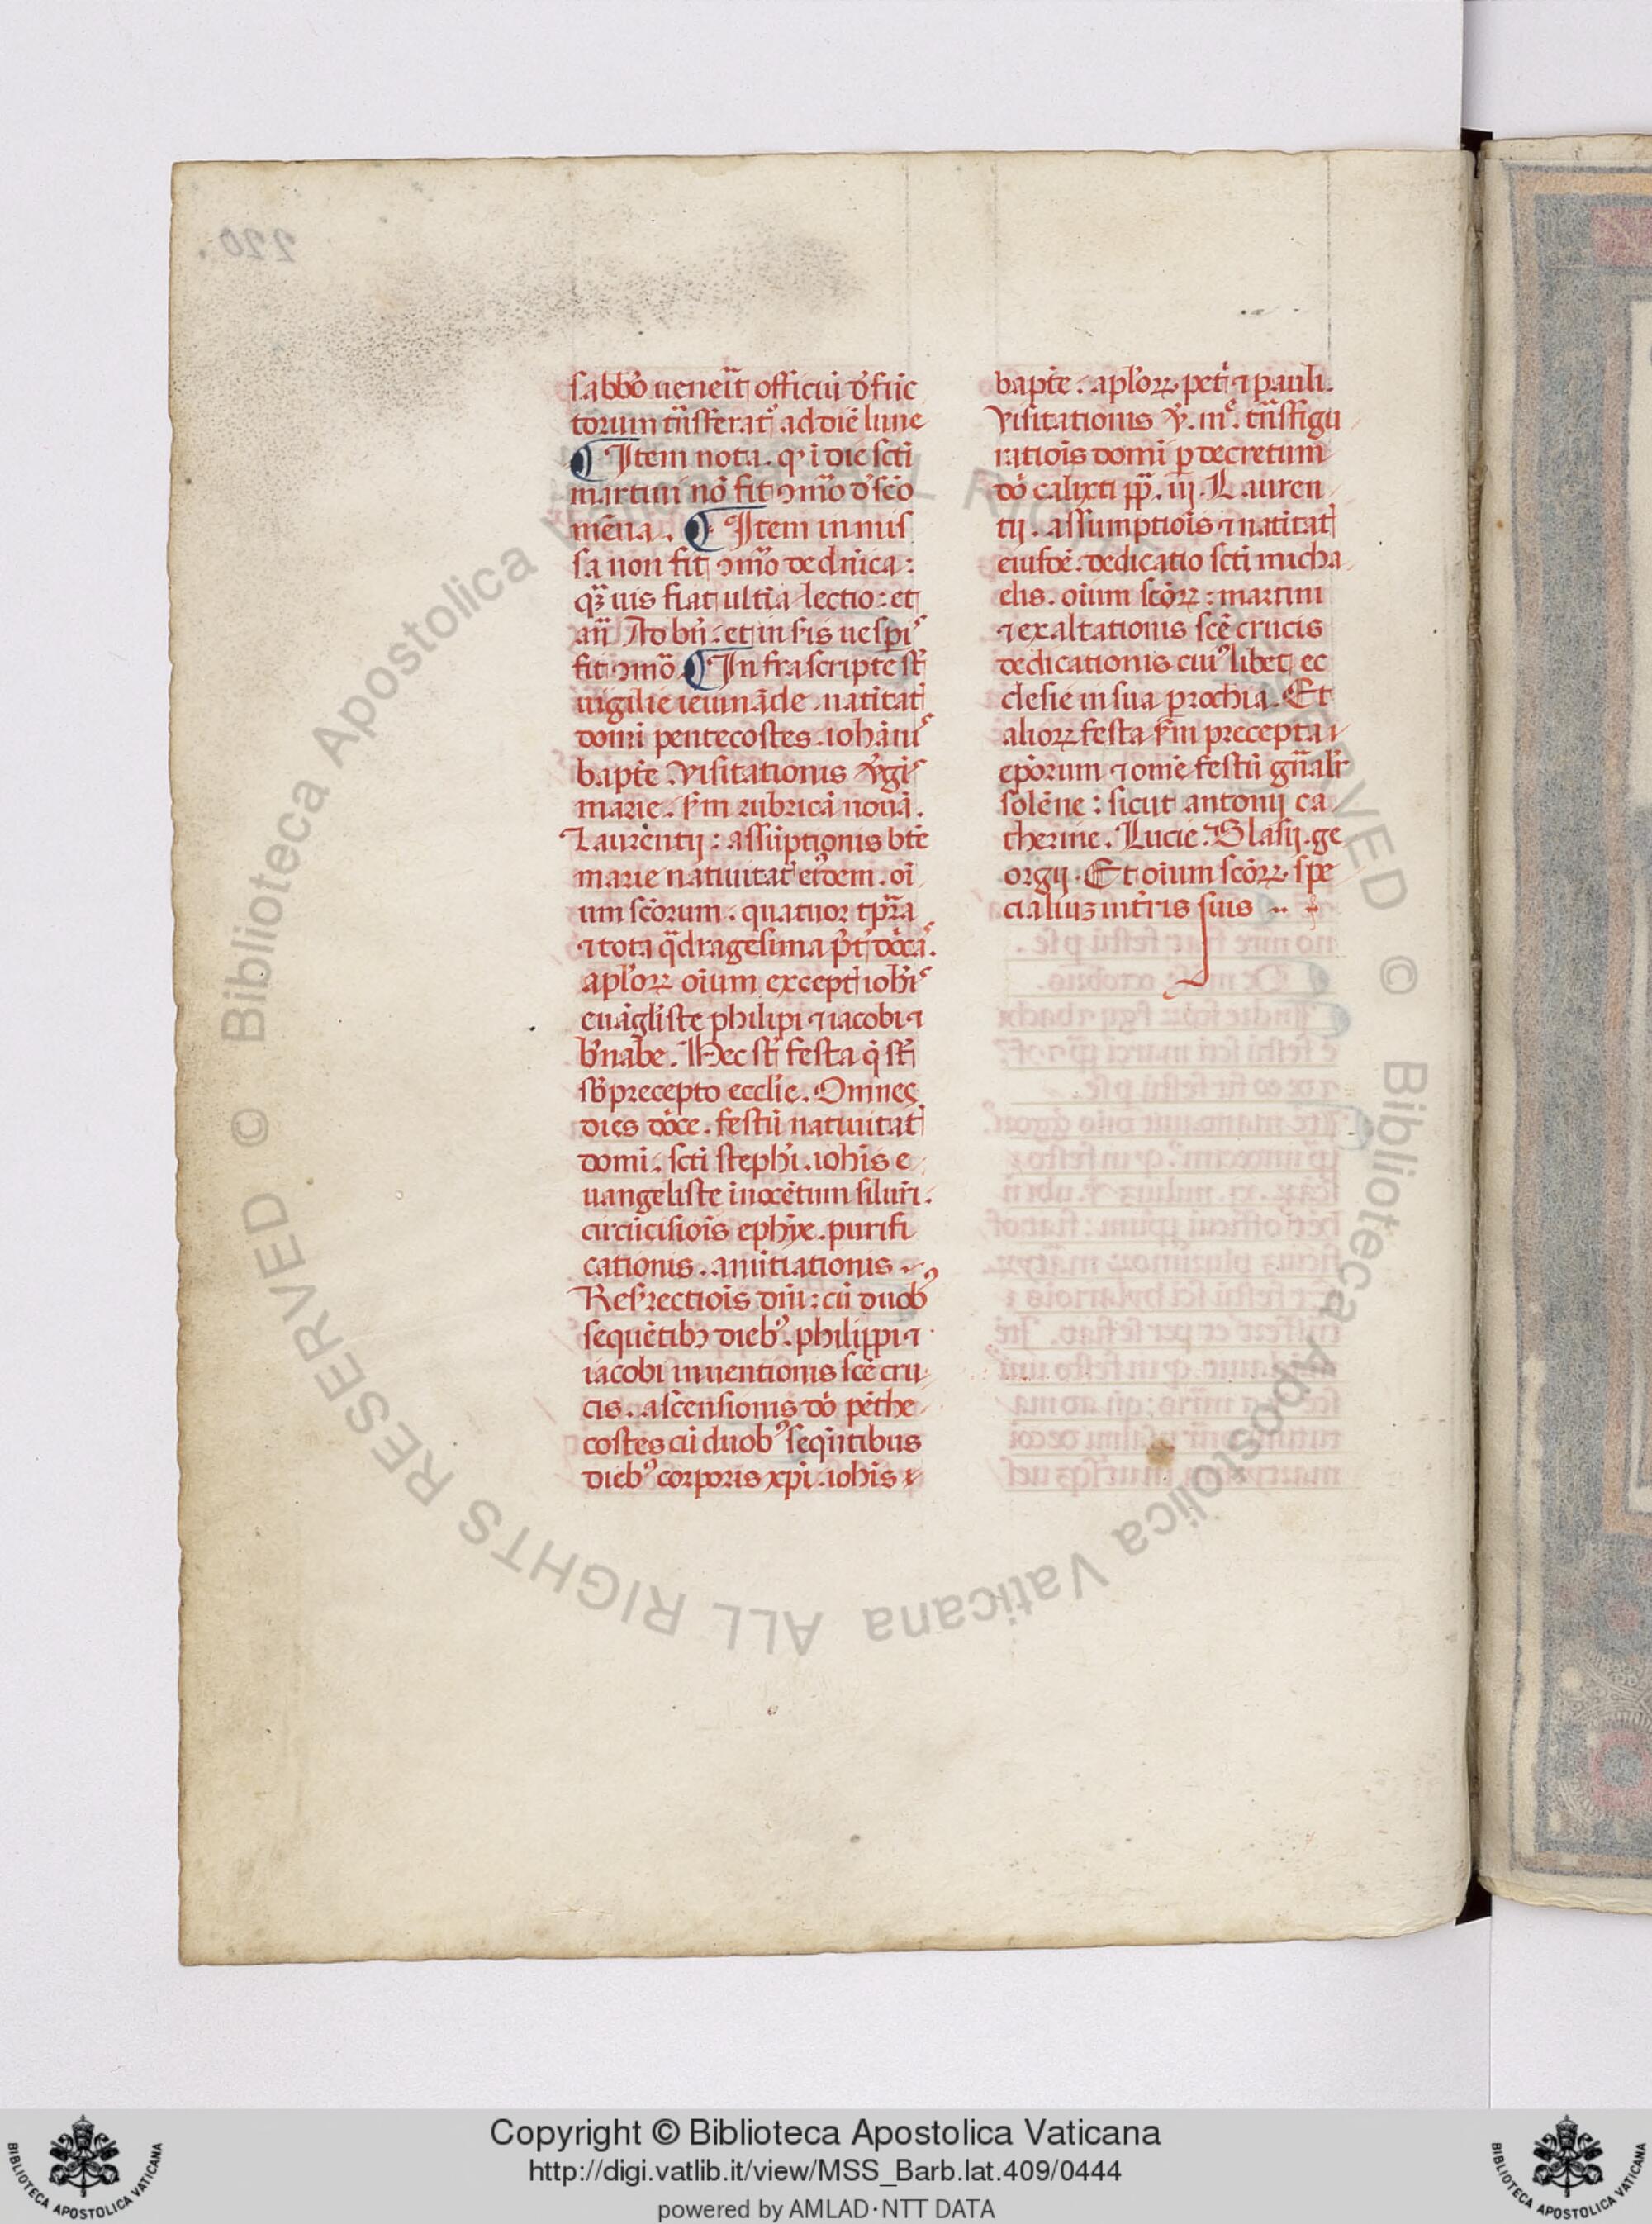 sabb̄o ueneīt officiū d̄ fūc
torum trāsferatᷣ ad diē lune
¶ Item nota. ꝙ i die scti
martini nō fit ꝯmō d̄ scō
mēna. ¶ Item in mis
sa non fit ꝯmō de dn̄ica:
qͣꝫuis fiat ultīa lectio: et
an̄ Ad bn̄. et in sis uesp̄i
fit ꝯmō ¶ Infrascripte st̄
uigilie ieiunāde. natitat
domī pentecostes. iohāni
bapt̄e. visitationis v̄gis
marie. s̄m rubricā nouā.
Laurētii: assūptionis bt̄e
marie natiuitat eiꝰdem. oī
um sc̄orum. quatuor tp̄ra
⁊ tota qͣdragesima p̄t̄ d̄ocā.
apl̄oꝝ oīum except ioh̄i
euāgliste philipi ⁊ iacobi ⁊
b̄nabe. Hec st̄ festa q̄ st̄
sb̄ precepto eccl̄ie. Omnes
dies d̄oce. festū natiuitat
domi. scti steph̄i. ioh̄is e
uangeliste inocētum siluri.
circūcisiōis eph̄ye. purifi
cationis. anūtiationis
Resr̄ectiōis dn̄i: cū duobꝰ
sequētibꝫ diebꝰ. philippi ⁊
iacobi inuentionis sc̄e cru
cis. ascensionis dō pēthe
costes cū duobꝰ seqn̄tibus
diebꝰ corporis xp̄i. ioh̄is
bapt̄e. apl̄oꝝ. pet̄i ⁊ pauli.
visitationis v̄. m̄e. trāsfigu
ratiōis domī ꝑ decretum
dō calixti pp̄. iij. Lauren
tij. assumptiōis ⁊ natitat
eiusdē. dedicatio scti micha
elis. oīum sc̄oꝝ: martini
⁊ exaltationis sc̄e crucis
dedicationis cuiꝰlibet ec
clesie in sua ꝑrochia. Et
alioꝝ festa s̄m precepta
ep̄orum ⁊ omē festū gn̄alr̄
solēne: sicut antonij ca
therine. Lucie. Blasij. ge
orgij. Et oīum sc̄oꝝ. spe
cialiuꝫ in tr̄is suis
220.
Copyright © Biblioteca Apostolica Vaticana
http://digi.vatlib.it/view/MSS_Barb.lat.409/0444
powered by AMLAD·NTT DATA
BIBLIOTECA APOSTOLICA VATICANA
BIBLIOTECA APOSTOLICA VATICANA
© Biblioteca Apostolica Vaticana ALL RIGHTS RESERVED © Biblioteca Apostolica Vaticana ALL RIGHTS RESERVED